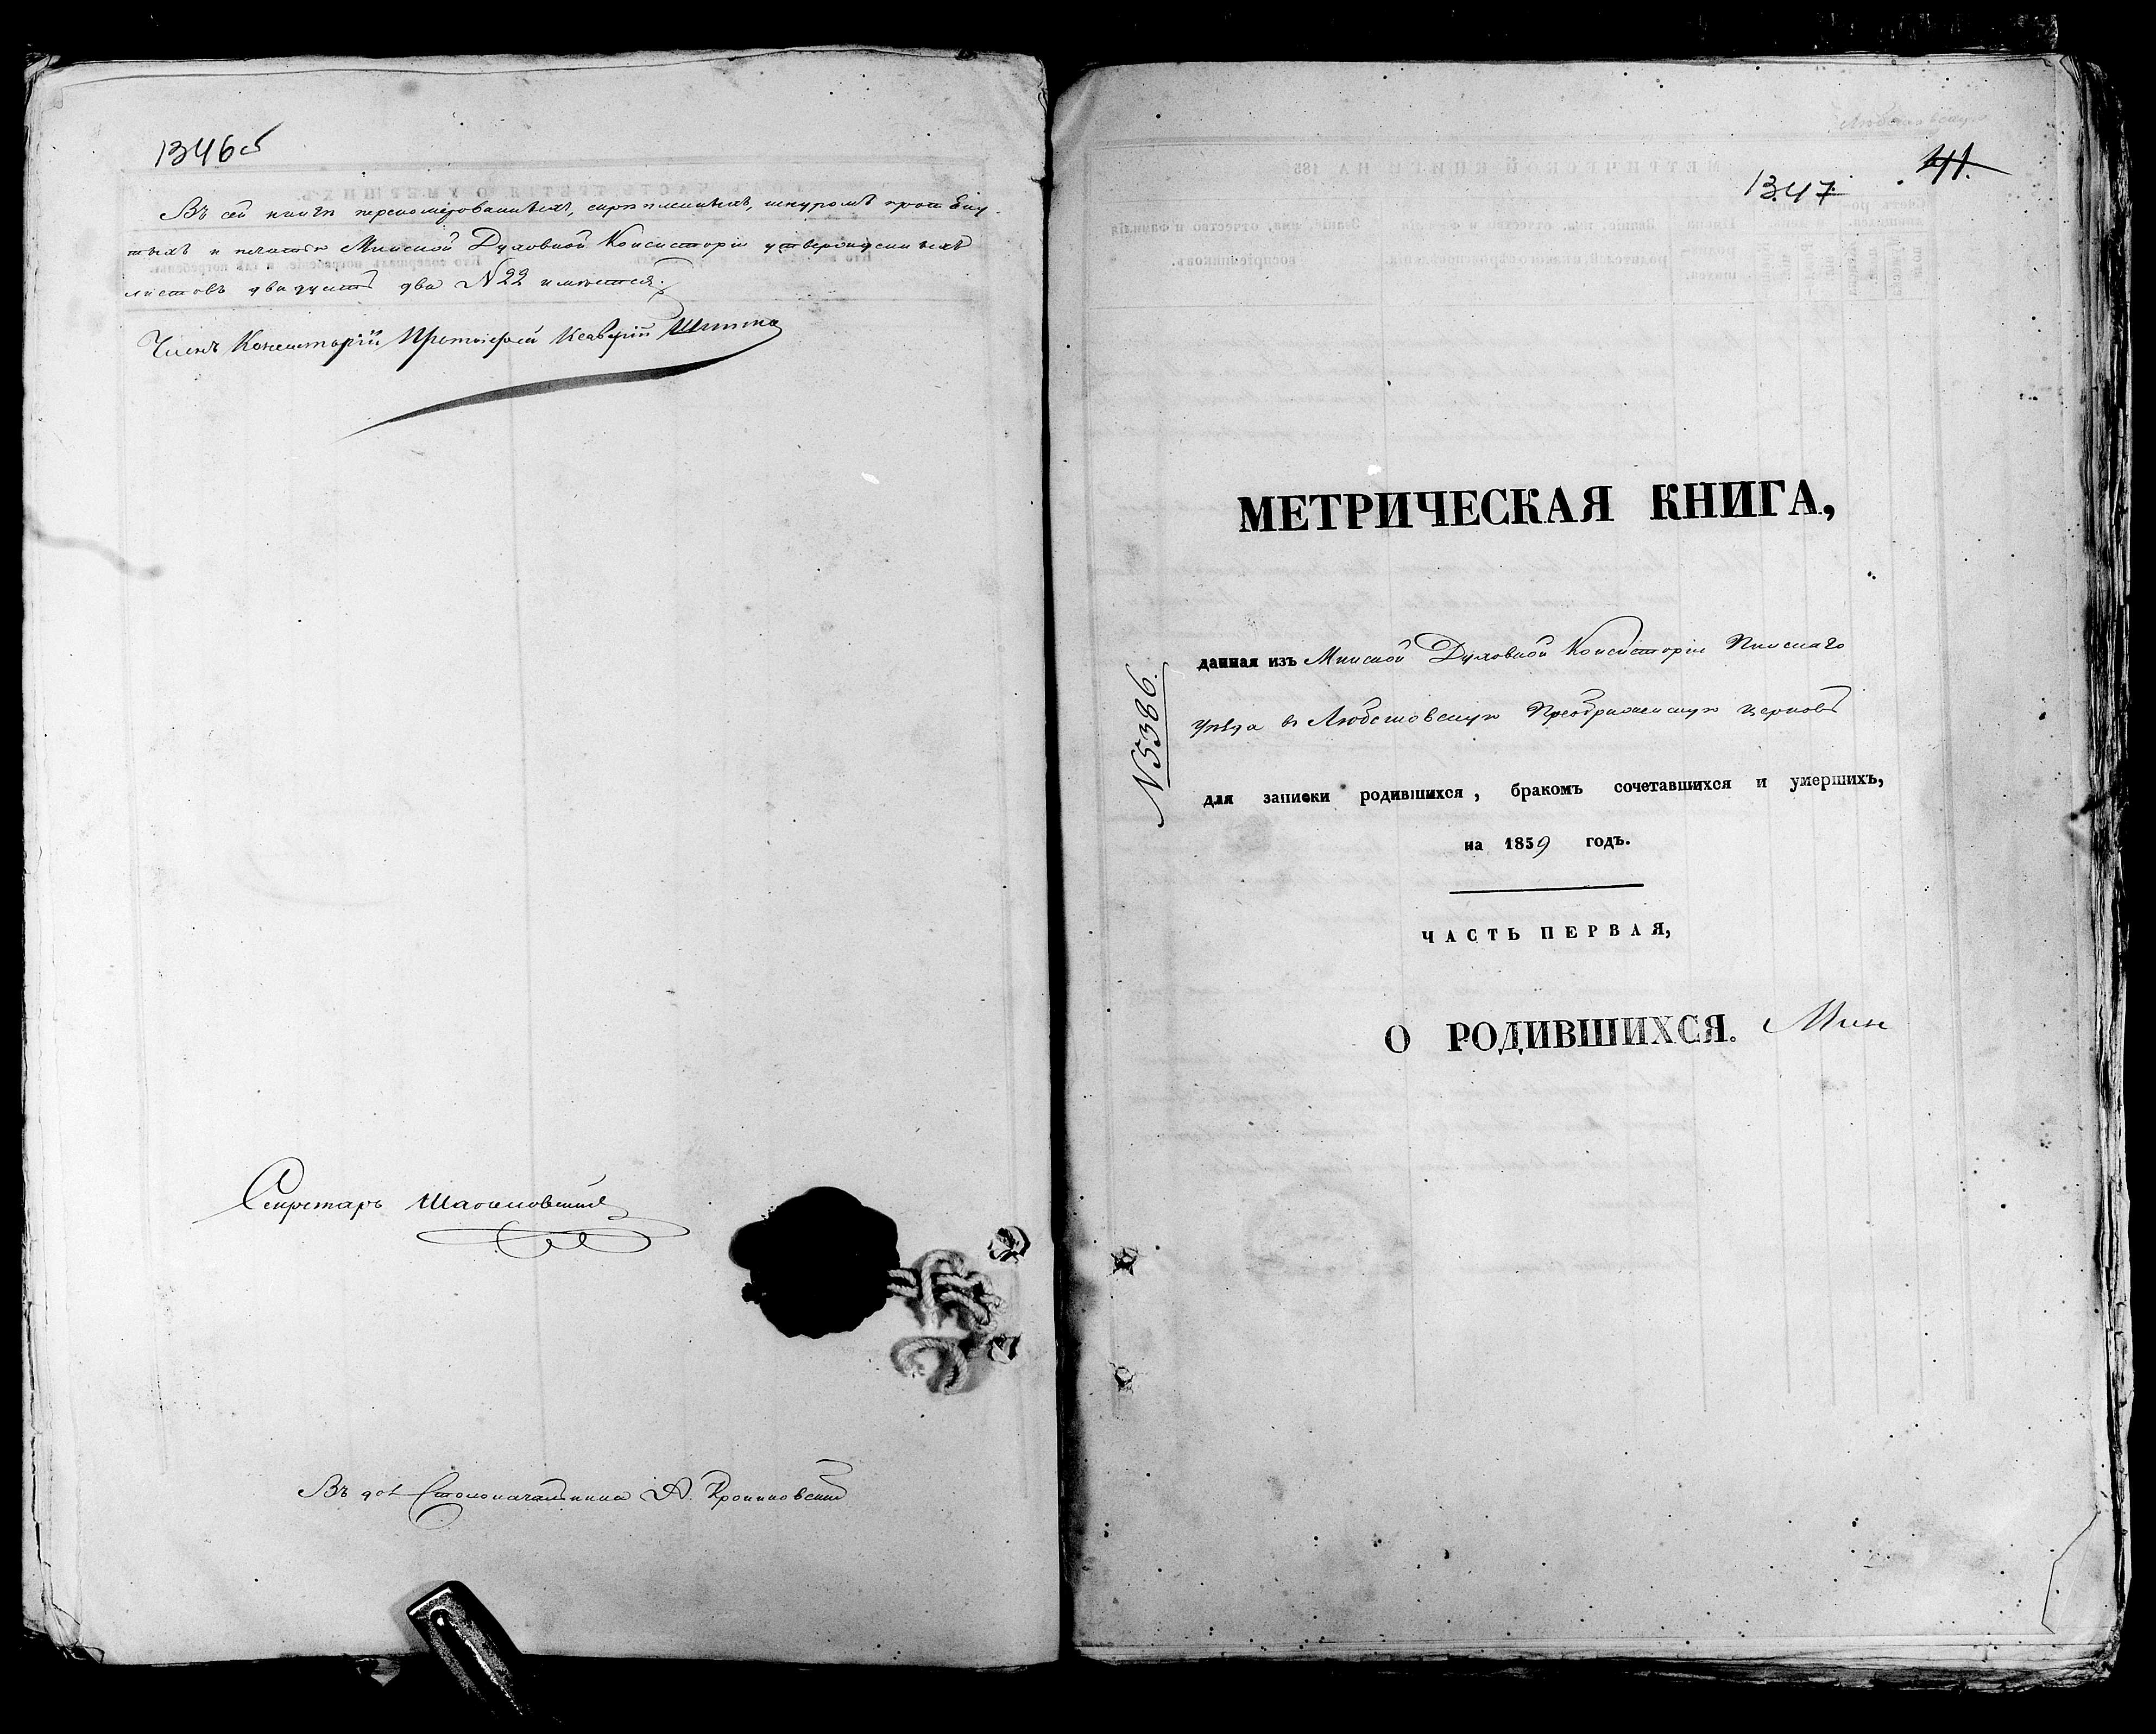 1346об
Въ сей книгѣ переномерованныхъ, скрѣпленныхъ, шнуромъ протяну-
тыхъ и печатью Минской Духовной Консисторіи утвержденныхъ
листовъ двадцать два N 22 имѣется.
Членъ Консисторіи Протоіерей
Секретарь
Въ дол. Столоначальника А.
1347
41.
МЕТРИЧЕСКАЯ КНИГА,
N 5386.
данная изъ Минской Духовной Консисторіи Пинскаго
уѣзда въ Любешовскую Преображенскую церковь
для записки родившихся, бракомъ сочетавшихся и умершихъ,
на 1859 годъ.
ЧАСТЬ ПЕРВАЯ,
О РОДИВШИХСЯ. Мин